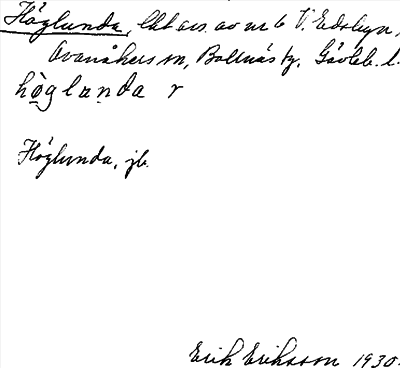 Höglunda, lht avs. av nr 6 V. Edsbyn,
Ovanåkers sn, Bollnäs tg. Gävleb. l.
hǫglu̠nda r
Höglunda, jb.
Erik Eriksson 1930.